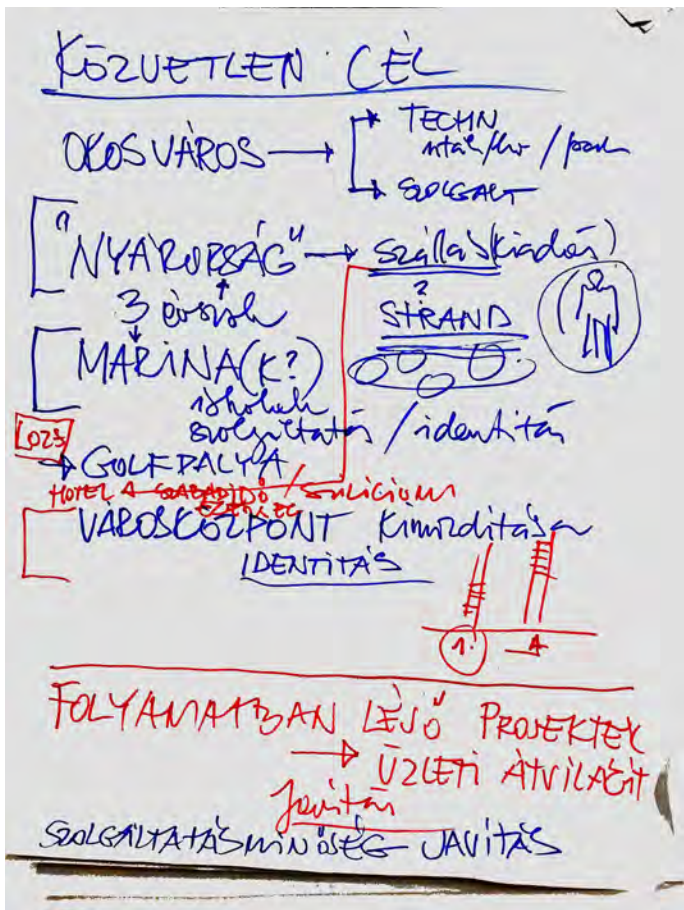 KÖZVETLEN CÉL
OKOSVÁROS → TECHN
SZOLGALT
"NYÁRORSÁG" → szállás(kiadás)
?
3 évszak STRAND
MARINA(K?)
iskolák
szolgáltatás / identitás
→ GOLFPÁLYA
HOTEL A SZABADIDŐ / SZILICIUM
VÁROSKÖZPONT kimozdítása
IDENTITÁS
1. 4
FOLYAMATBAN LÉVŐ PROJEKTEK
→ ÜZLETI ÁTVILÁGÍT
Javítás
SZOLGÁLTATÁSMINŐSÉG JAVÍTÁS